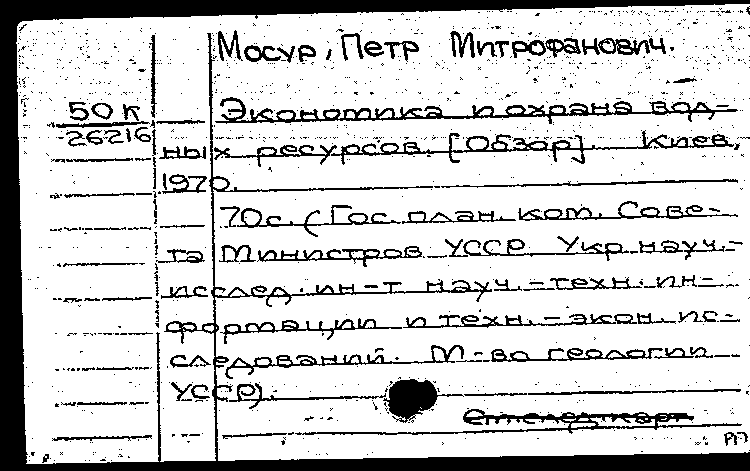 Мосур, Петр Митрофанович.
50К
26216
Экономика и охрана вод-
ных ресурсов. [Обзор]. Киев,
1970.
70с. (Гос. план. ком. Сове-
та Министров УССР. Укр. науч.-
исслед. ин-т науч.-техн. ин-
формации и техн.-экон. ис-
следований. М-во геологии
УССР).
См. след. карт
РП